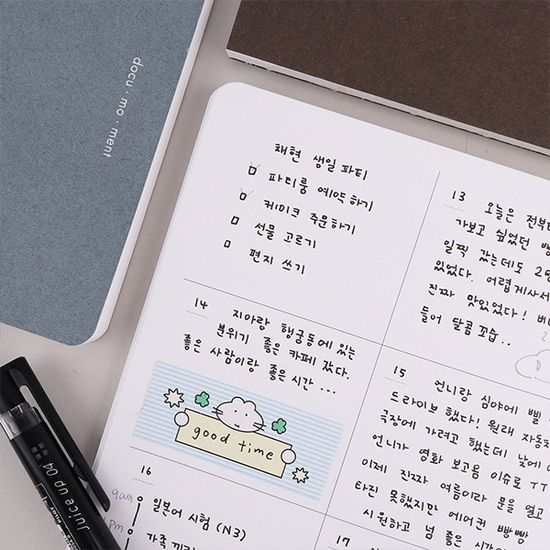 docu·mo·ment
채현 생일 파티
파티룸 예약하기
케이크 주문하기
선물 고르기
편지 쓰기
13 오늘은 전부터
가보고 싶었던 빵
일찍 갔는데도 2명
있었다. 어렵게사서
진짜 맛있었다! 버
들어 달콤 꼬숩...
14 지아랑 행궁동에 있는
분위기 좋은 카페 갔다.
좋은 사람이랑 좋은 시간...
good time
15 언니랑 심야에 삘
드라이브 했다! 원래 자동차
극장에 가려고 했는데 낮에
언니가 영화 보고옴 이슈로 TT
이제 진짜 여름이라 문을 열고
타진 못했지만 에어컨 빵빵
시원하고 넘 좋은 시간이
16
9am 일본어 시험 (N3)
pm 가족
17
Juice up 04